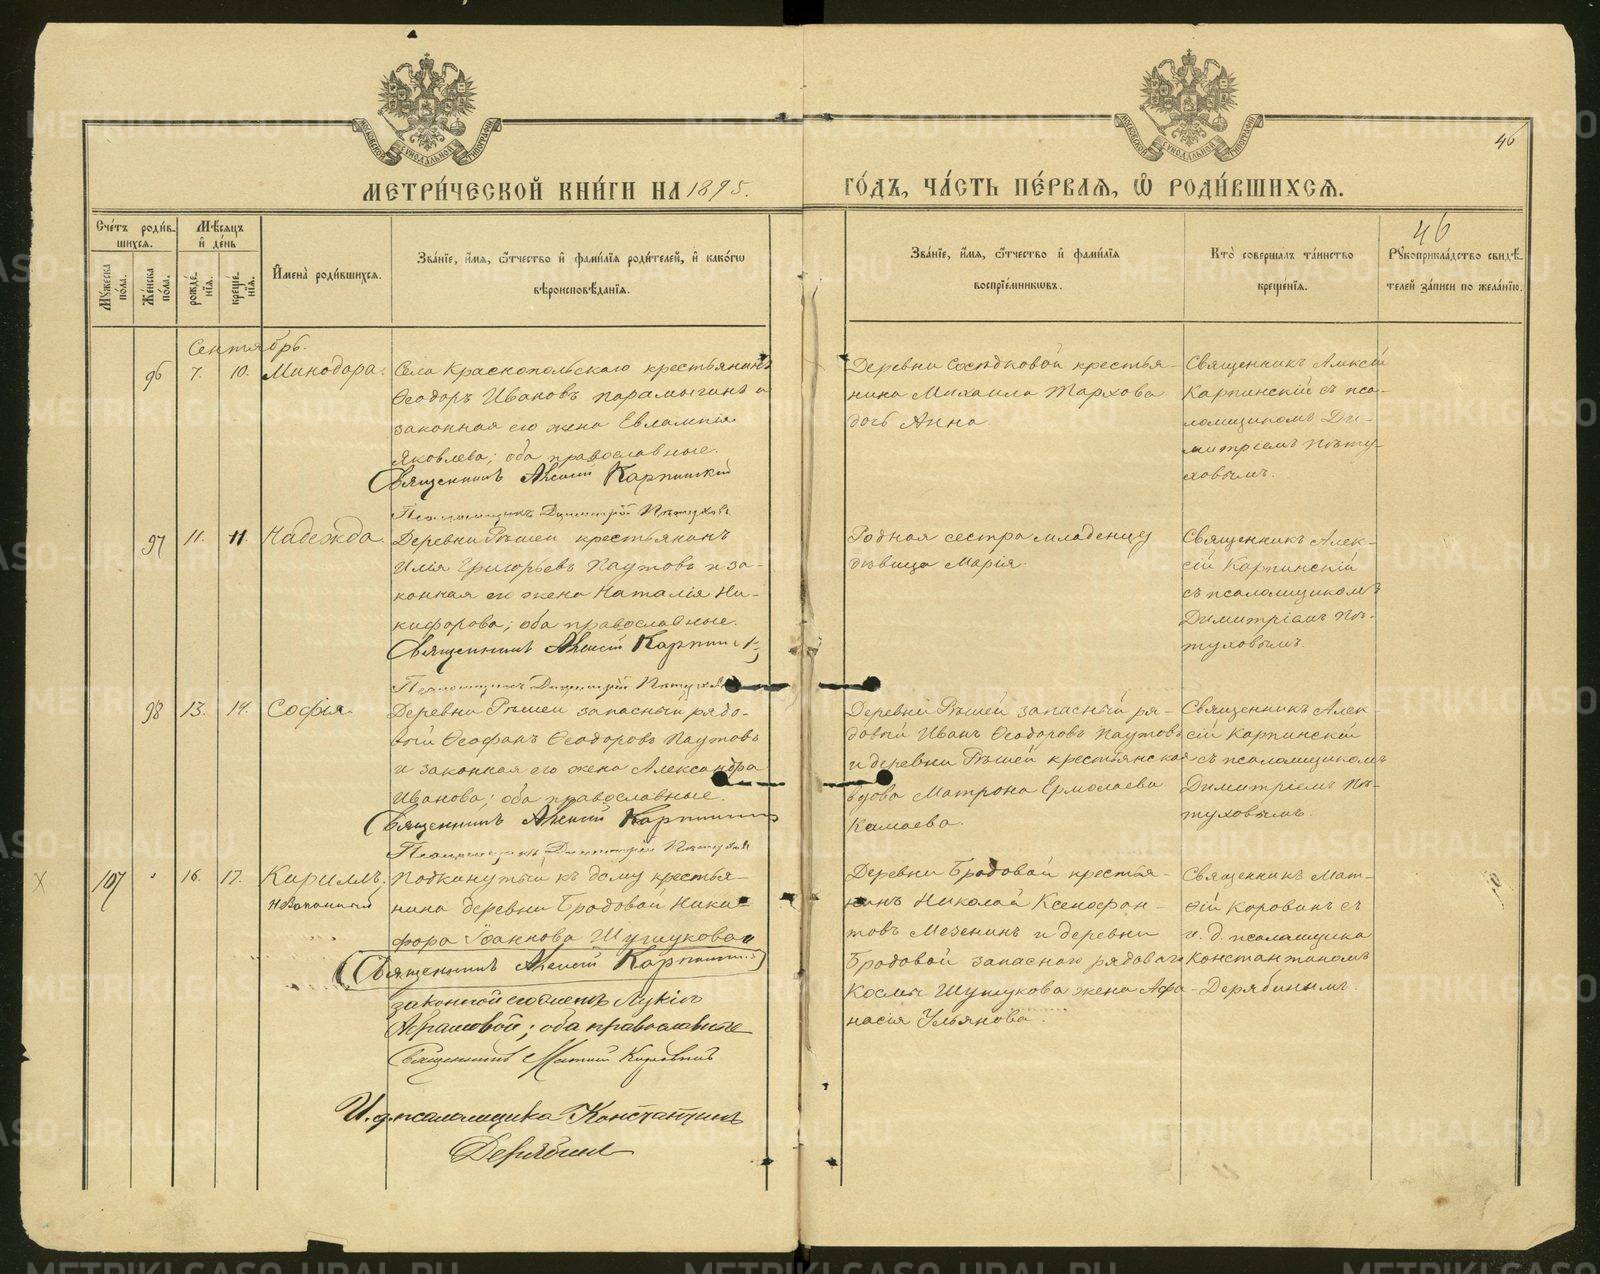 МЕТРИ́ЧЕСКОЙ КНИ́ГИ НА 1895.
ГО́ДЪ, ЧА́СТЬ ПЕ́РВАЯ, Ѡ РОДИ́ВШИХСЯ.
46
46
Сче́тъ роди́в-
шихся.
Му́жеска по́ла.
Же́нска по́ла.
Мѣ́сяцъ
и де́нь
рожде́нїя.
креще́нїя.
Имена̀ роди́вшихся.
Зва́нїе, и́мя, ѻ҆́тчество и фами́лїя роди́телей, и како́гѡ
вѣроисповѣ́данїя.
Зва́нїе, и́мя, ѻ҆́тчество и фами́лїя
воспрїе́мникѡвъ.
Кто̀ соверша́лъ та́инство
креще́нїя.
Рꙋкоприкла́дство свидѣ́-
телей за́писи по жела́нїю.
Сентябрь.
96
7.
10.
Минодора.
Села Краснопольскаго крестьянинъ
Ѳеодоръ Ивановъ Парамыгинъ и
законная его жена Евлампія
Яковлева; оба православные.
Священникъ Алексій Карпинскій
Псаломщикъ Димитрій Пѣтуховъ
Деревни Сосѣдковой крестья-
нина Михаила Тархова
дочь Анна.
Священникъ Алексій
Карпинскій съ пса-
ломщикомъ Ди-
митріемъ Пѣту-
ховымъ.
97
11.
11.
Надежда.
Деревни Рѣшей крестьянинъ
Илія Григорьевъ Паутовъ и за-
конная его жена Наталія Ни-
кифорова; оба православные.
Священникъ Алексій Карпинск
Псаломщикъ Димитрій Пѣтуховъ
Родная сестра младенцу
дѣвица Марія.
Священникъ Алек-
сій Карпинскій
съ псаломщикомъ
Димитріемъ Пѣ-
туховымъ.
98
13.
14.
Софія.
Деревни Рѣшей запасный рядо-
вый Ѳеофанъ Ѳеодоровъ Паутовъ
и законная его жена Александра
Иванова; оба православные.
Священникъ Алексій Карпинскій
Псаломщикъ Димитрій Пѣтуховъ
Деревни Рѣшей запасный ря-
довый Иванъ Ѳеодоровъ Паутовъ
и деревни Рѣшей крестьянская
вдова Матрона Ермолаева
Камаева.
Священникъ Алек-
сій Карпинскій
съ псаломщикомъ
Димитріемъ Пѣ-
туховымъ.
107
16.
17.
Кириллъ,
Подкинутый къ дому крестья-
нина деревни Бродовой Ники-
фора Іоаннова Шушукова и
Священникъ Алексій Карпинскій
законной его женѣ Лукіи
Абрамовой; оба православные
Священникъ Матѳій Корованъ
И. д. псаломщика Константинъ
Дерябинъ
Деревни Бродовой крестья-
нинъ Николай Ксенофон-
товъ Мезенинъ и деревни
Бродовой запаснаго рядоваго
Космы Шушукова жена Афа-
насія Ульянова.
Священникъ Мат-
ѳій Корованъ съ
и. д. псаломщика
Константиномъ
Дерябинымъ.
METRIKI.GASO-URAL.RU